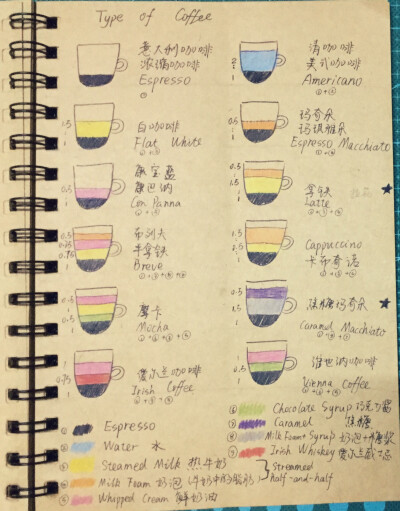 Type of Coffee
意大利咖啡
浓缩咖啡
Espresso
清咖啡
美式咖啡
Americano
白咖啡
Flat White
玛奇朵
玛琪雅朵
Espresso Macchiato
康宝蓝
康巴纳
Con Panna
拿铁
Latte
布列夫
半拿铁
Breve
Cappuccino
卡布奇诺
摩卡
Mocha
焦糖玛奇朵
Caramel Macchiato
爱尔兰咖啡
Irish Coffee
维也纳咖啡
Vienna Coffee
Espresso
Water 水
Steamed Milk 热牛奶
Milk Foam 奶泡
Whipped Cream 鲜奶油
Chocolate Syrup 巧克力酱
Caramel 焦糖
Milk Foam + Syrup 奶泡+糖浆
Irish Whiskey 爱尔兰威士忌
steamed
half-and-half